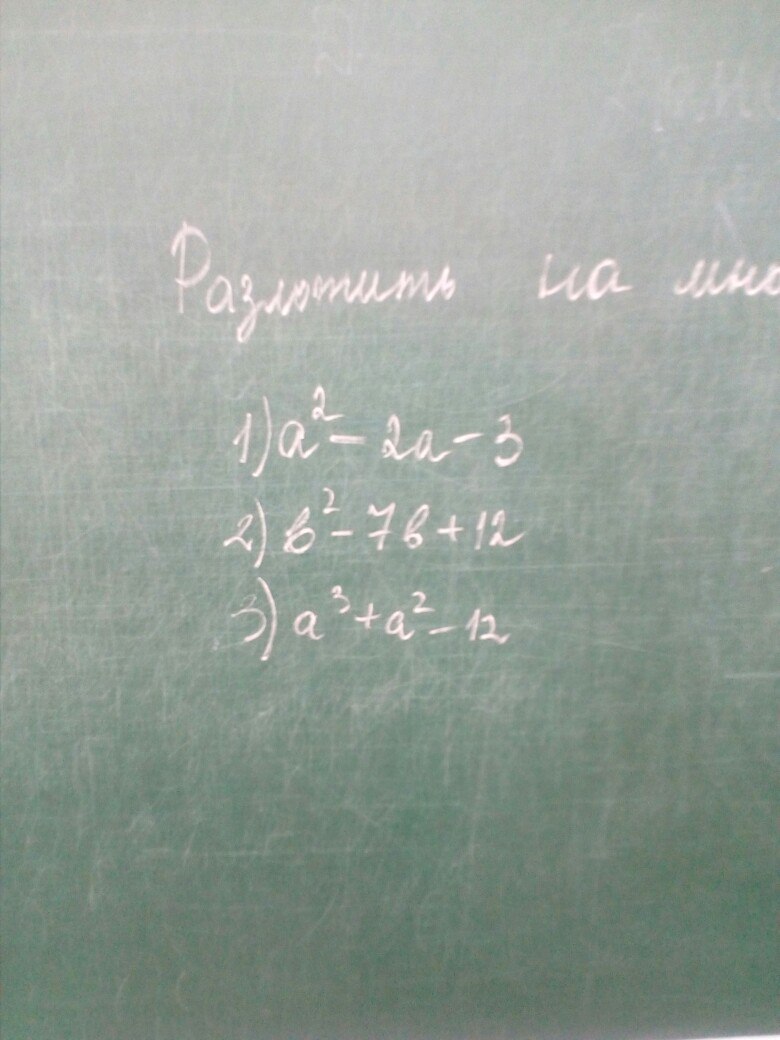 Разложить на мно
1) a² - 2a - 3
2) в² - 7в + 12
3) a³ + a² - 12